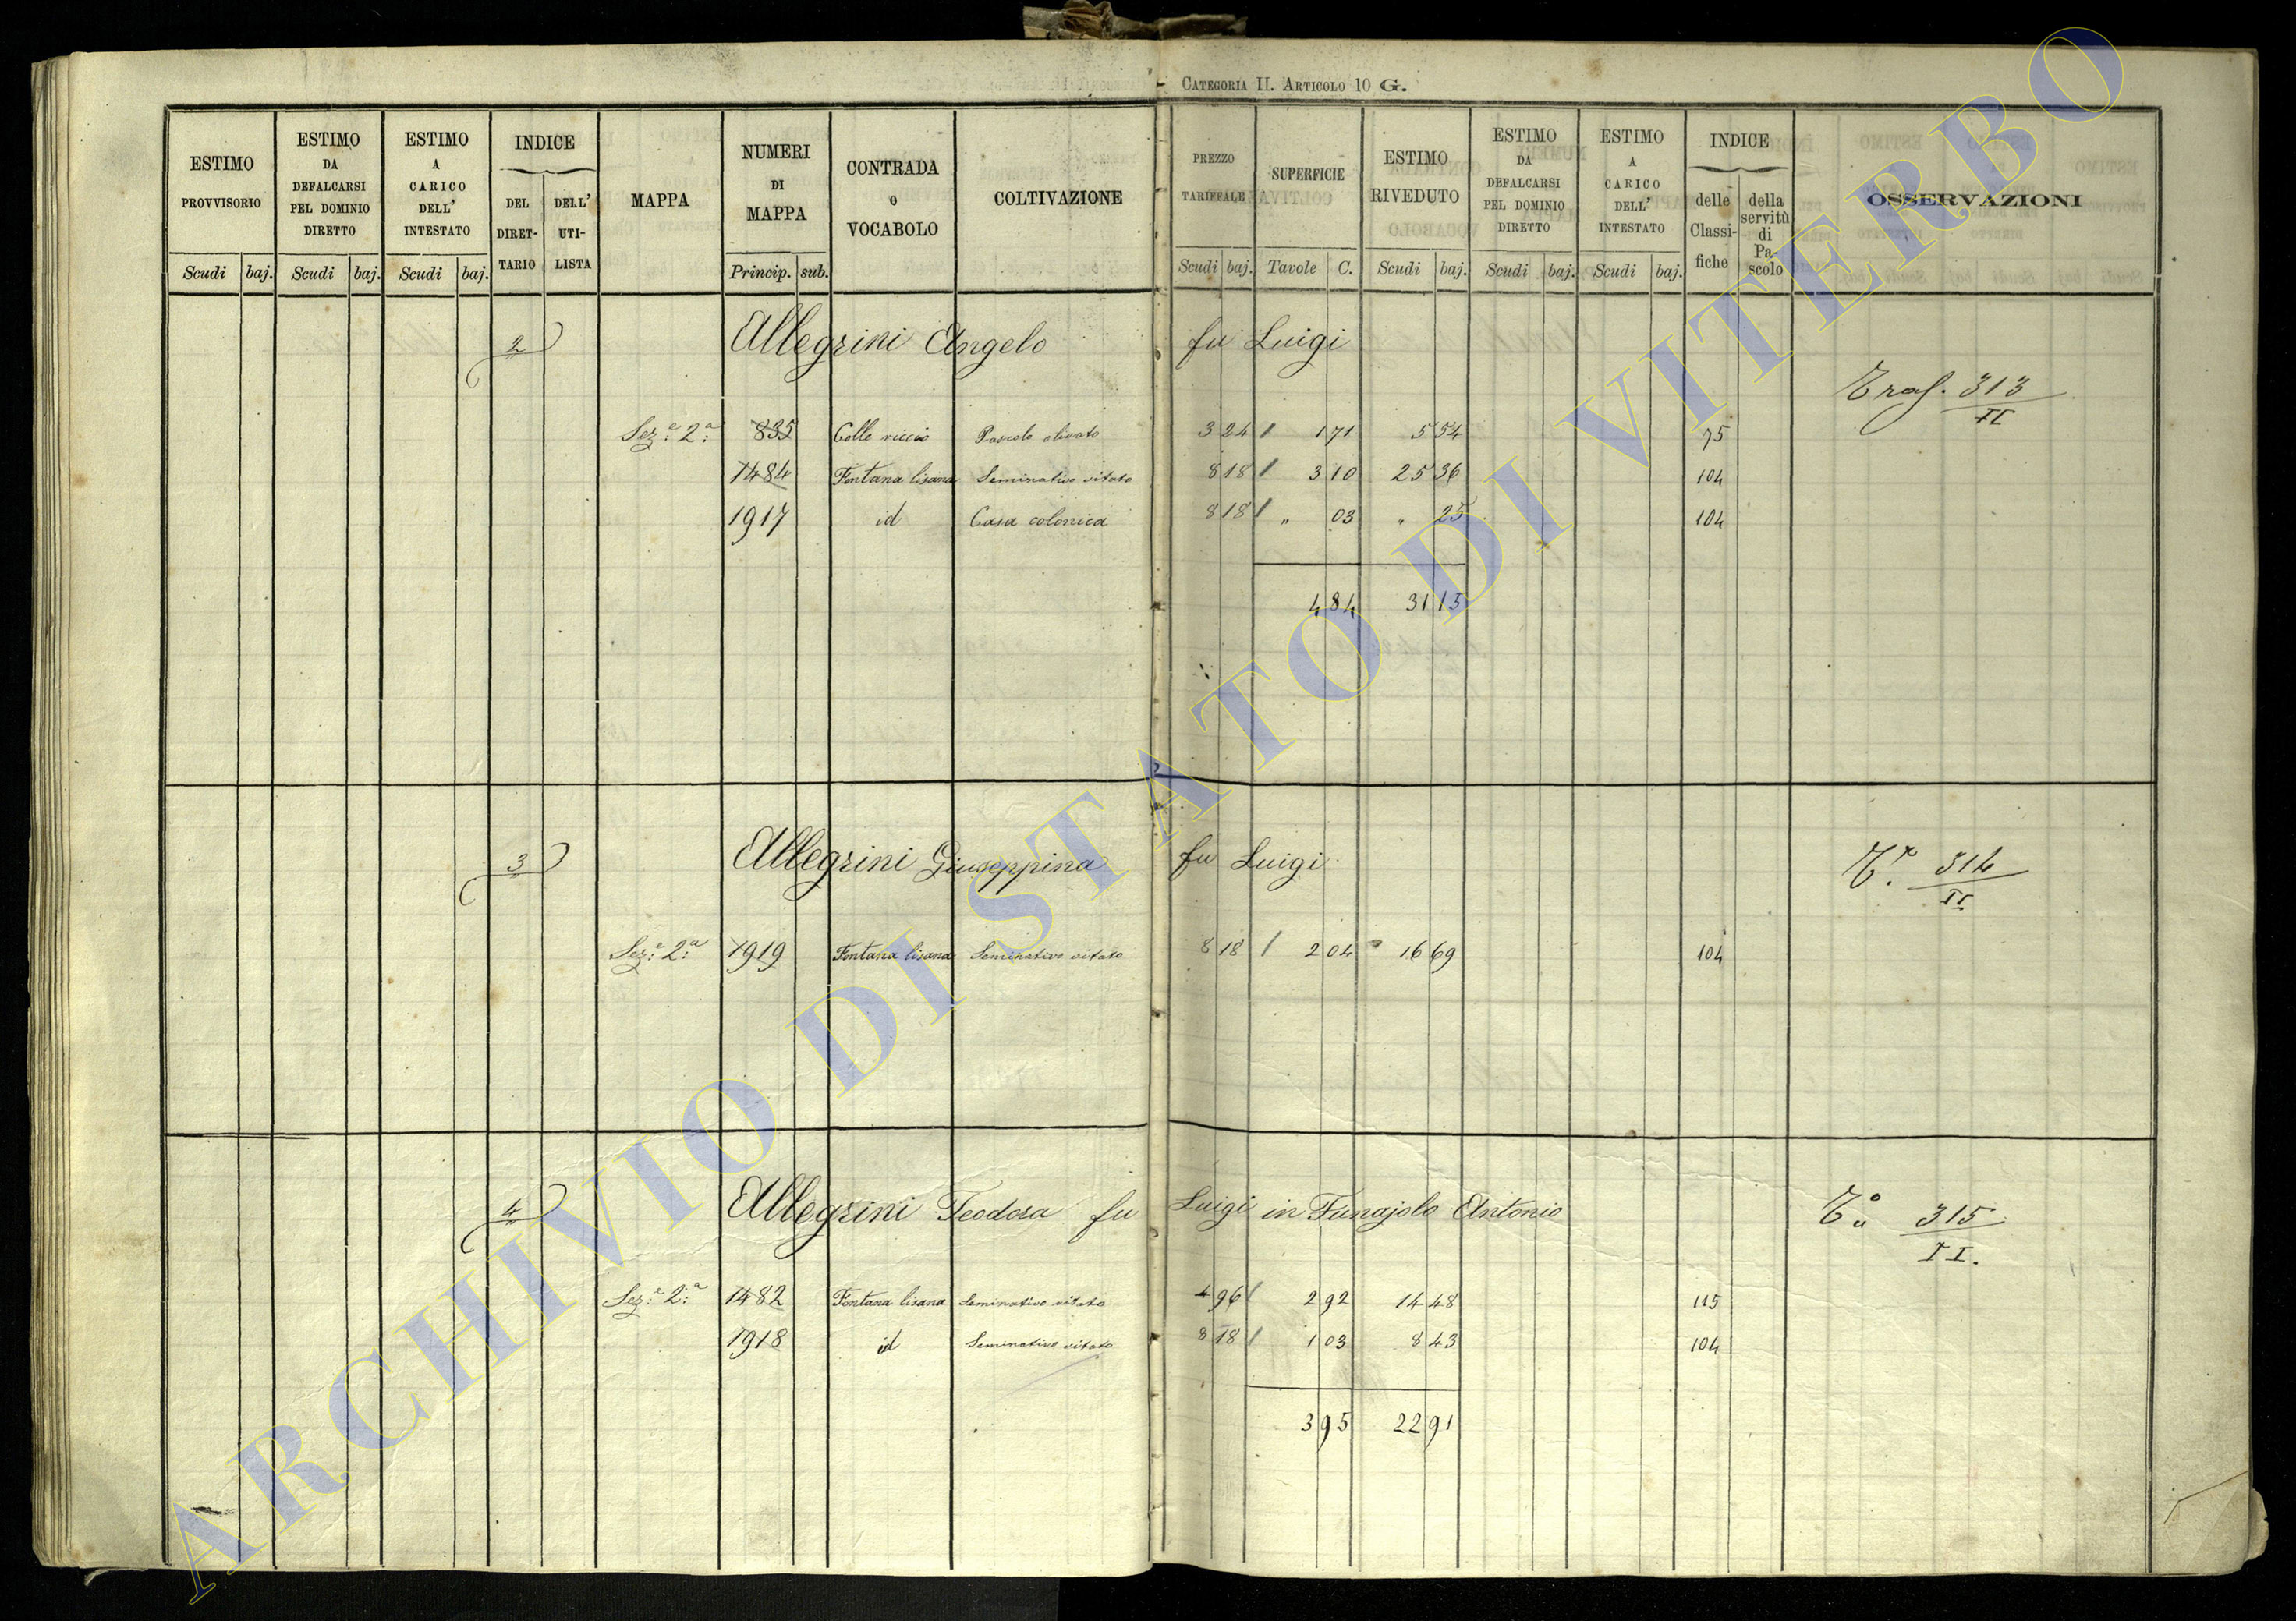 CATEGORIA II. ARTICOLO 10 G.
ESTIMO PROVVISORIO
Scudi baj.
ESTIMO DA DEFALCARSI PEL DOMINIO DIRETTO
Scudi baj.
ESTIMO A CARICO DELL' INTESTATO
Scudi baj.
INDICE
DEL DIRET- TARIO
DELL' UTI- LISTA
MAPPA
NUMERI DI MAPPA
Princip. sub.
CONTRADA o VOCABOLO
COLTIVAZIONE
PREZZO TARIFFALE
Scudi baj.
SUPERFICIE
Tavole C.
ESTIMO RIVEDUTO
Scudi baj.
ESTIMO DA DEFALCARSI PEL DOMINIO DIRETTO
Scudi baj.
ESTIMO A CARICO DELL' INTESTATO
Scudi baj.
INDICE
delle Classi- fiche
della servitù di Pa- scolo
OSSERVAZIONI
2 Allegrini Angelo fu Luigi
Traf. 313
II
Sez.e 2.a 835 Colle riccio Pascolo olivato 3 24 1 71 5 54 75
1484 Fontana lisana Seminativo vitato 8 18 3 10 25 36 104
1917 id Casa colonica 8 18 " 03 " 25 104
4 84 31 15
3 Allegrini Giuseppina fu Luigi
314
II
Sez.e 2.a 1919 Fontana lisana Seminativo vitato 8 18 2 04 16 69 104
4 Allegrini Teodora fu Luigi in Funajolo Antonio
315
II.
Sez.e 2.a 1482 Fontana lisana Seminativo vitato 4 96 2 92 14 48 115
1918 id Seminativo vitato 8 18 1 03 8 43 104
3 95 22 91
ARCHIVIO DI STATO DI VITERBO